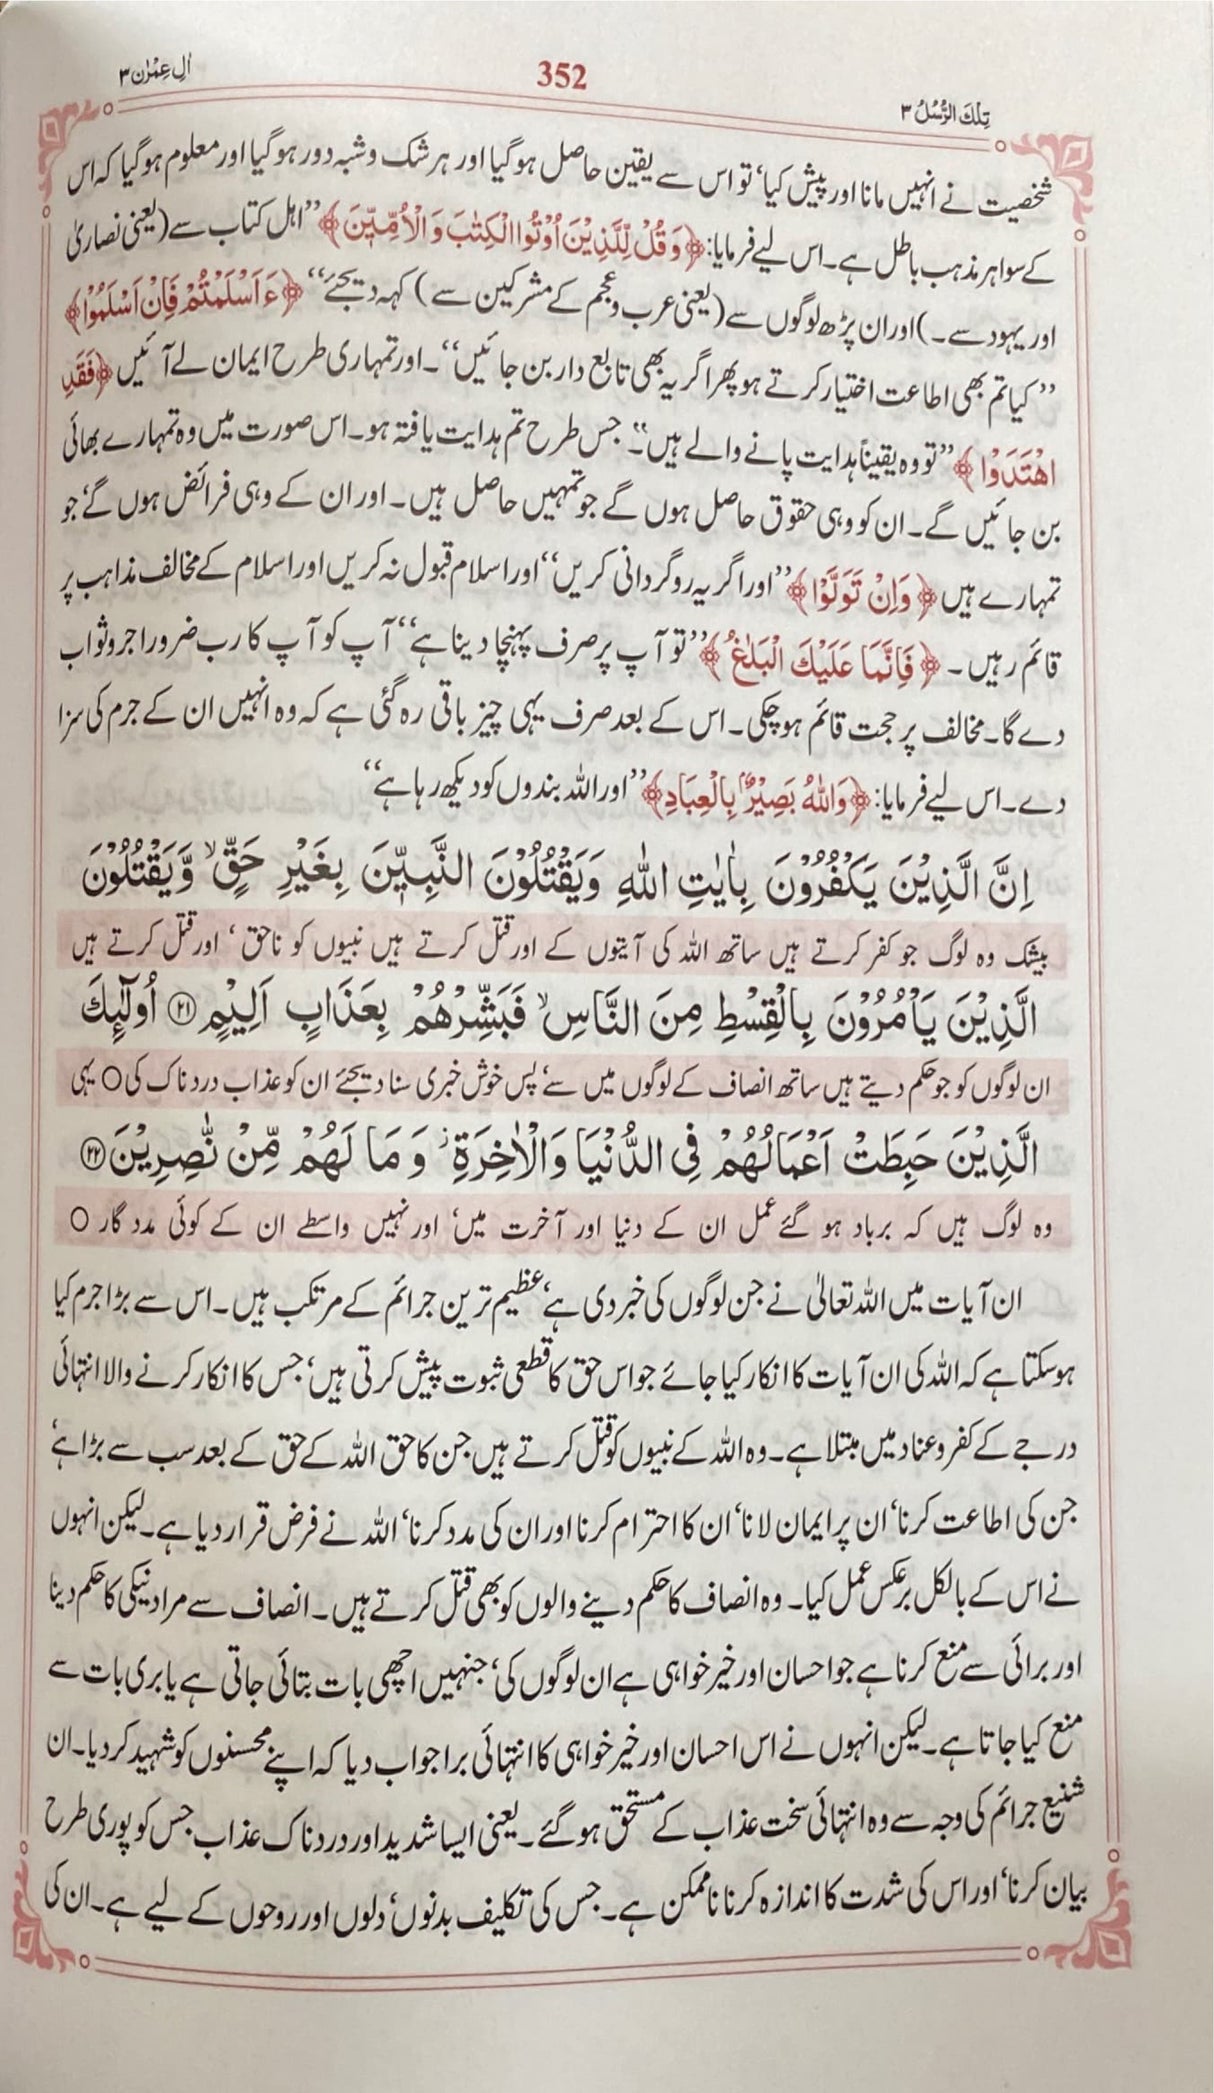 اٰلِ عِمْرٰن ۳
352
تِلْكَ الرُّسُلُ ۳
شخصیت نے انہیں مانا اور پیش کیا، تو اس سے یقین حاصل ہو گیا اور ہر شک و شبہ دور ہو گیا اور معلوم ہو گیا کہ اس
کے سوا ہر مذہب باطل ہے۔ اس لیے فرمایا: ﴿وَقُلْ لِّلَّذِيْنَ اُوْتُوا الْكِتٰبَ وَالْاُمِّيّٖنَ﴾ ’’اہل کتاب سے (یعنی نصاریٰ
اور یہود سے۔) اور ان پڑھ لوگوں سے (یعنی عرب و عجم کے مشرکین سے) کہہ دیجئے‘‘ ﴿ءَاَسْلَمْتُمْ فَاِنْ اَسْلَمُوْا﴾
’’کیا تم بھی اطاعت اختیار کرتے ہو پھر اگر یہ بھی تابع دار بن جائیں‘‘۔ اور تمہاری طرح ایمان لے آئیں ﴿فَقَدِ
اهْتَدَوْا﴾ ’’تو وہ یقیناً ہدایت پانے والے ہیں‘‘۔ جس طرح تم ہدایت یافتہ ہو۔ اس صورت میں وہ تمہارے بھائی
بن جائیں گے۔ ان کو وہی حقوق حاصل ہوں گے جو تمہیں حاصل ہیں۔ اور ان کے وہی فرائض ہوں گے، جو
تمہارے ہیں ﴿وَاِنْ تَوَلَّوْا﴾ ’’اور اگر یہ روگردانی کریں‘‘ اور اسلام قبول نہ کریں اور اسلام کے مخالف مذاہب پر
قائم رہیں۔ ﴿فَاِنَّمَا عَلَيْكَ الْبَلٰغُ﴾ ’’تو آپ پر صرف پہنچا دینا ہے‘‘ آپ کو آپ کا رب ضرور اجر و ثواب
دے گا۔ مخالف پر حجت قائم ہو چکی۔ اس کے بعد صرف یہی چیز باقی رہ گئی ہے کہ وہ انہیں ان کے جرم کی سزا
دے۔ اس لیے فرمایا: ﴿وَاللّٰهُ بَصِيْرٌۢ بِالْعِبَادِ﴾ ’’اور اللہ بندوں کو دیکھ رہا ہے‘‘
اِنَّ الَّذِيْنَ يَكْفُرُوْنَ بِاٰيٰتِ اللّٰهِ وَيَقْتُلُوْنَ النَّبِيّٖنَ بِغَيْرِ حَقٍّ ۙ وَّيَقْتُلُوْنَ
بیشک وہ لوگ جو کفر کرتے ہیں ساتھ اللہ کی آیتوں کے اور قتل کرتے ہیں نبیوں کو ناحق ، اور قتل کرتے ہیں
الَّذِيْنَ يَاْمُرُوْنَ بِالْقِسْطِ مِنَ النَّاسِ ۙ فَبَشِّرْهُمْ بِعَذَابٍ اَلِيْمٍ ۝۲۱ اُولٰٓئِكَ
ان لوگوں کو جو حکم دیتے ہیں ساتھ انصاف کے لوگوں میں سے، پس خوش خبری سنا دیجئے ان کو عذاب دردناک کی ○ یہی
الَّذِيْنَ حَبِطَتْ اَعْمَالُهُمْ فِي الدُّنْيَا وَالْاٰخِرَةِ ۡ وَمَا لَهُمْ مِّنْ نّٰصِرِيْنَ ۝۲۲
وہ لوگ ہیں کہ برباد ہو گئے عمل ان کے دنیا اور آخرت میں، اور نہیں واسطے ان کے کوئی مدد گار ○
ان آیات میں اللہ تعالیٰ نے جن لوگوں کی خبر دی ہے، عظیم ترین جرائم کے مرتکب ہیں۔ اس سے بڑا جرم کیا
ہو سکتا ہے کہ اللہ کی ان آیات کا انکار کیا جائے جو اس حق کا قطعی ثبوت پیش کرتی ہیں، جس کا انکار کرنے والا انتہائی
درجے کے کفر و عناد میں مبتلا ہے۔ وہ اللہ کے نبیوں کو قتل کرتے ہیں جن کا حق اللہ کے حق کے بعد سب سے بڑا ہے،
جن کی اطاعت کرنا، ان پر ایمان لانا، ان کا احترام کرنا اور ان کی مدد کرنا، اللہ نے فرض قرار دیا ہے۔ لیکن انہوں
نے اس کے بالکل برعکس عمل کیا۔ وہ انصاف کا حکم دینے والوں کو بھی قتل کرتے ہیں۔ انصاف سے مراد نیکی کا حکم دینا
اور برائی سے منع کرنا ہے جو احسان اور خیر خواہی ہے ان لوگوں کی، جنہیں اچھی بات بتائی جاتی ہے یا بری بات سے
منع کیا جاتا ہے۔ لیکن انہوں نے اس احسان اور خیر خواہی کا انتہائی برا جواب دیا کہ اپنے محسنوں کو شہید کر دیا۔ ان
شنیع جرائم کی وجہ سے وہ انتہائی سخت عذاب کے مستحق ہو گئے۔ یعنی ایسا شدید اور دردناک عذاب جس کو پوری طرح
بیان کرنا، اور اس کی شدت کا اندازہ کرنا ناممکن ہے۔ جس کی تکلیف بدنوں، دلوں اور روحوں کے لیے ہے۔ ان کی